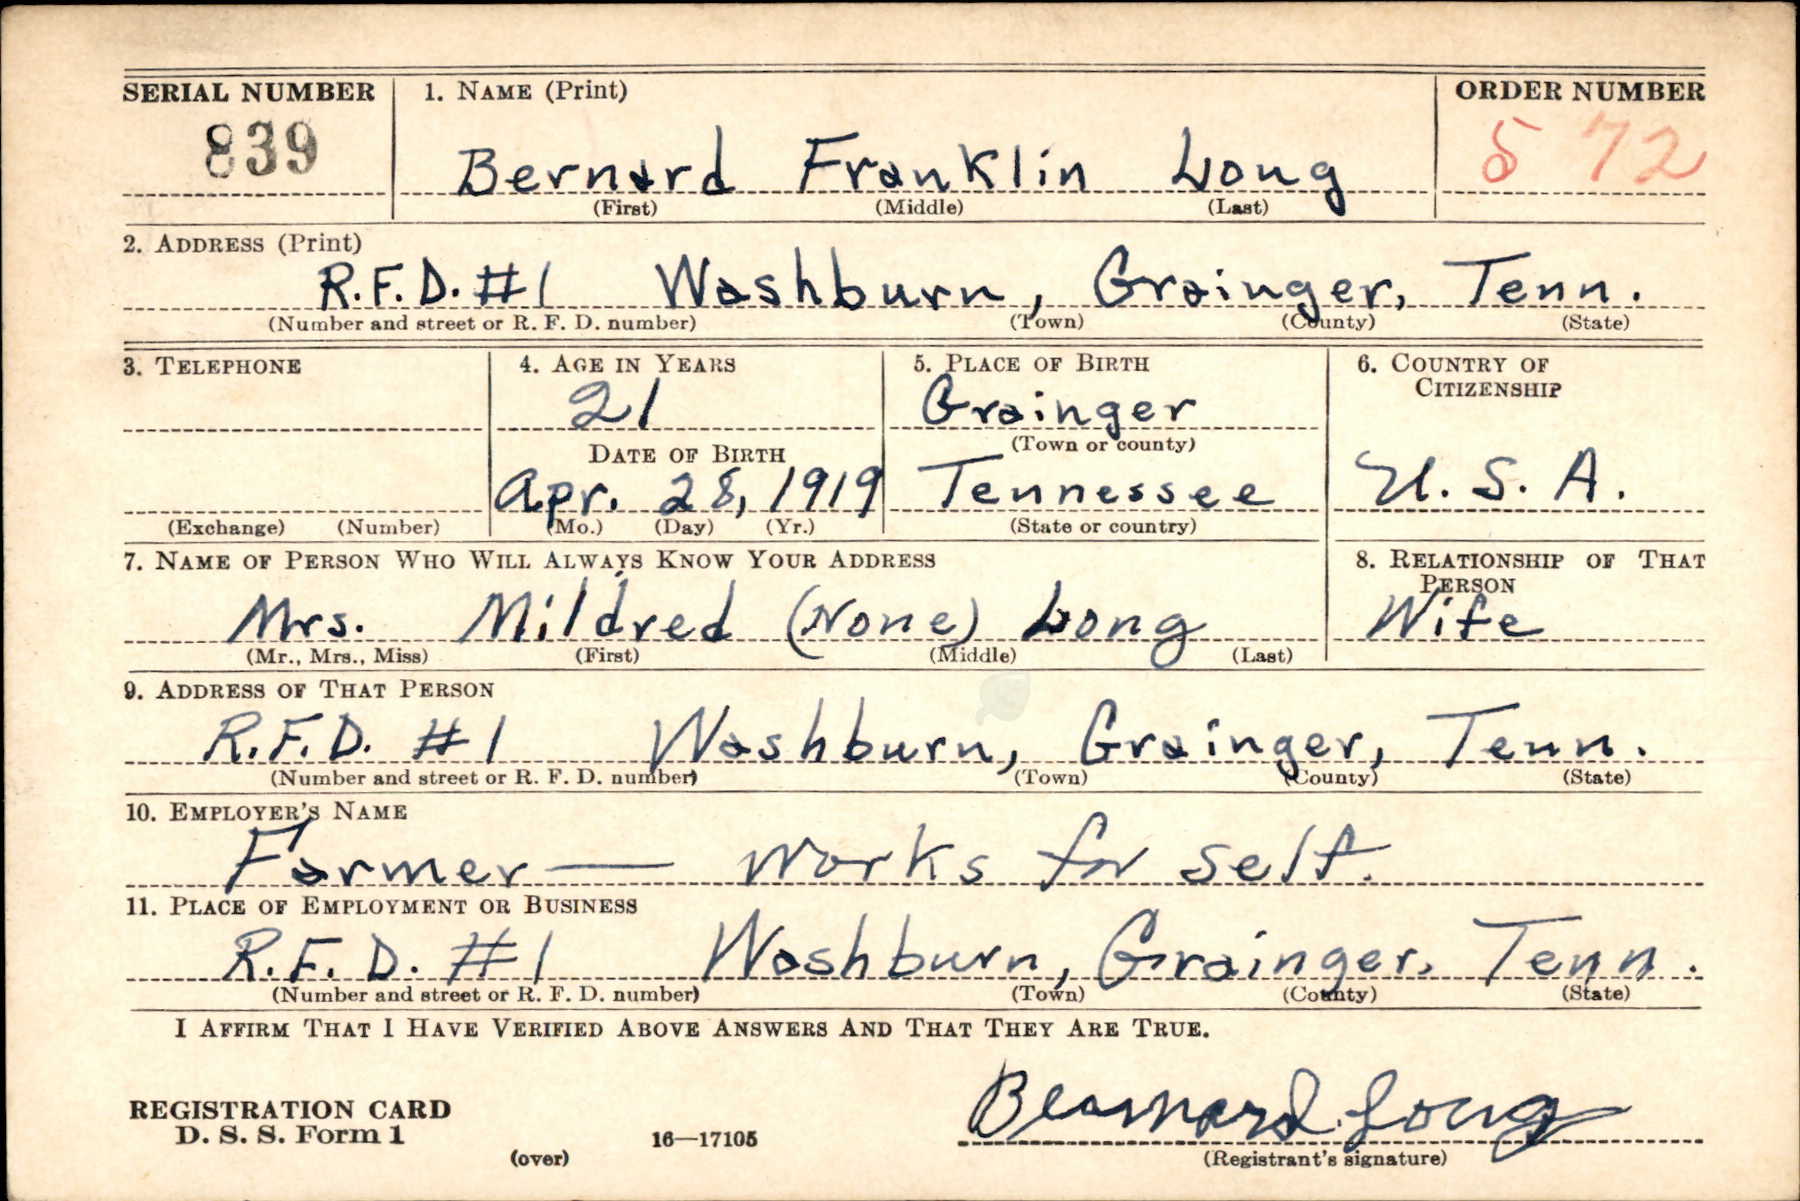 SERIAL NUMBER 1. NAME (Print) ORDER NUMBER
839 Bernard Franklin Long 572
(First) (Middle) (Last)
2. ADDRESS (Print)
R.F.D. #1 Washburn, Grainger, Tenn.
(Number and street or R. F. D. number) (Town) (County) (State)
3. TELEPHONE 4. AGE IN YEARS 5. PLACE OF BIRTH 6. COUNTRY OF
CITIZENSHIP
21 Grainger
(Town or county)
DATE OF BIRTH
Apr. 28, 1919 Tennessee U.S.A.
(Exchange) (Number) (Mo.) (Day) (Yr.) (State or country)
7. NAME OF PERSON WHO WILL ALWAYS KNOW YOUR ADDRESS 8. RELATIONSHIP OF THAT
PERSON
Mrs. Mildred (None) Long Wife
(Mr., Mrs., Miss) (First) (Middle) (Last)
9. ADDRESS OF THAT PERSON
R.F.D. #1 Washburn, Grainger, Tenn.
(Number and street or R. F. D. number) (Town) (County) (State)
10. EMPLOYER'S NAME
Farmer — Works for self.
11. PLACE OF EMPLOYMENT OR BUSINESS
R.F.D. #1 Washburn, Grainger, Tenn.
(Number and street or R. F. D. number) (Town) (County) (State)
I AFFIRM THAT I HAVE VERIFIED ABOVE ANSWERS AND THAT THEY ARE TRUE.
Bearnard. Long
REGISTRATION CARD
D. S. S. Form 1
(over) 16—17105 (Registrant's signature)